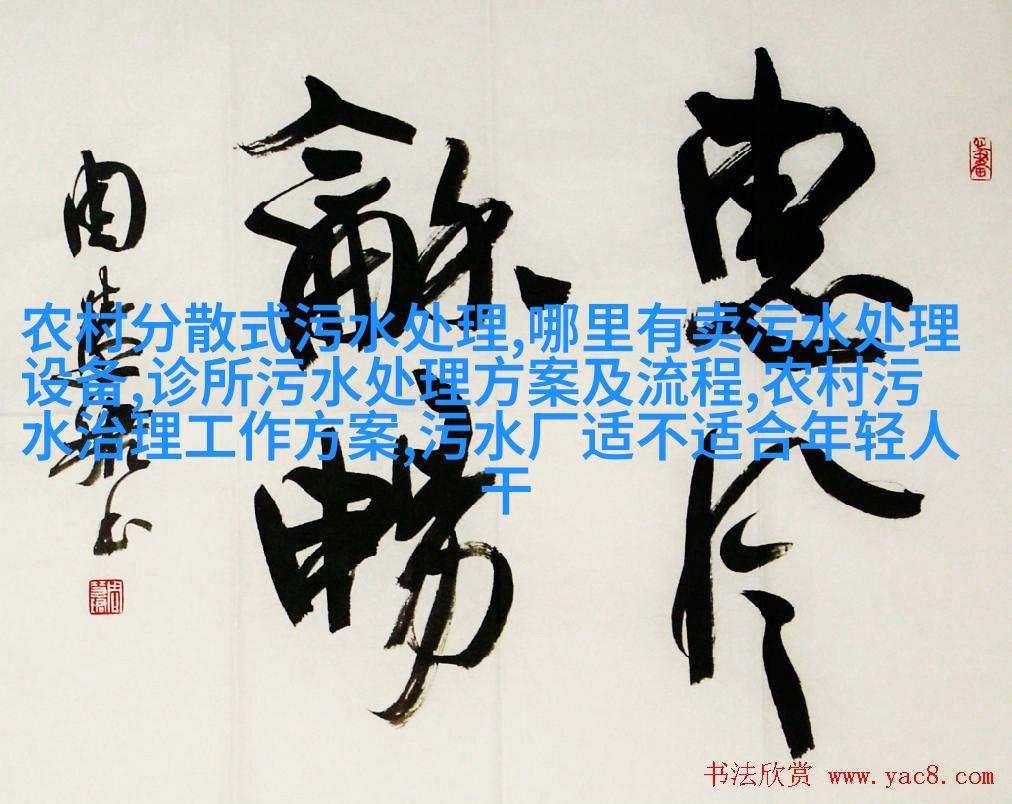 惠风
龢畅
周慧珺书
农村分散式污水处理,哪里有卖污水处理
设备,诊所污水处理方案及流程,农村污
水治理工作方案,污水厂适不适合年轻人
干
书法欣赏 www.yac8.com